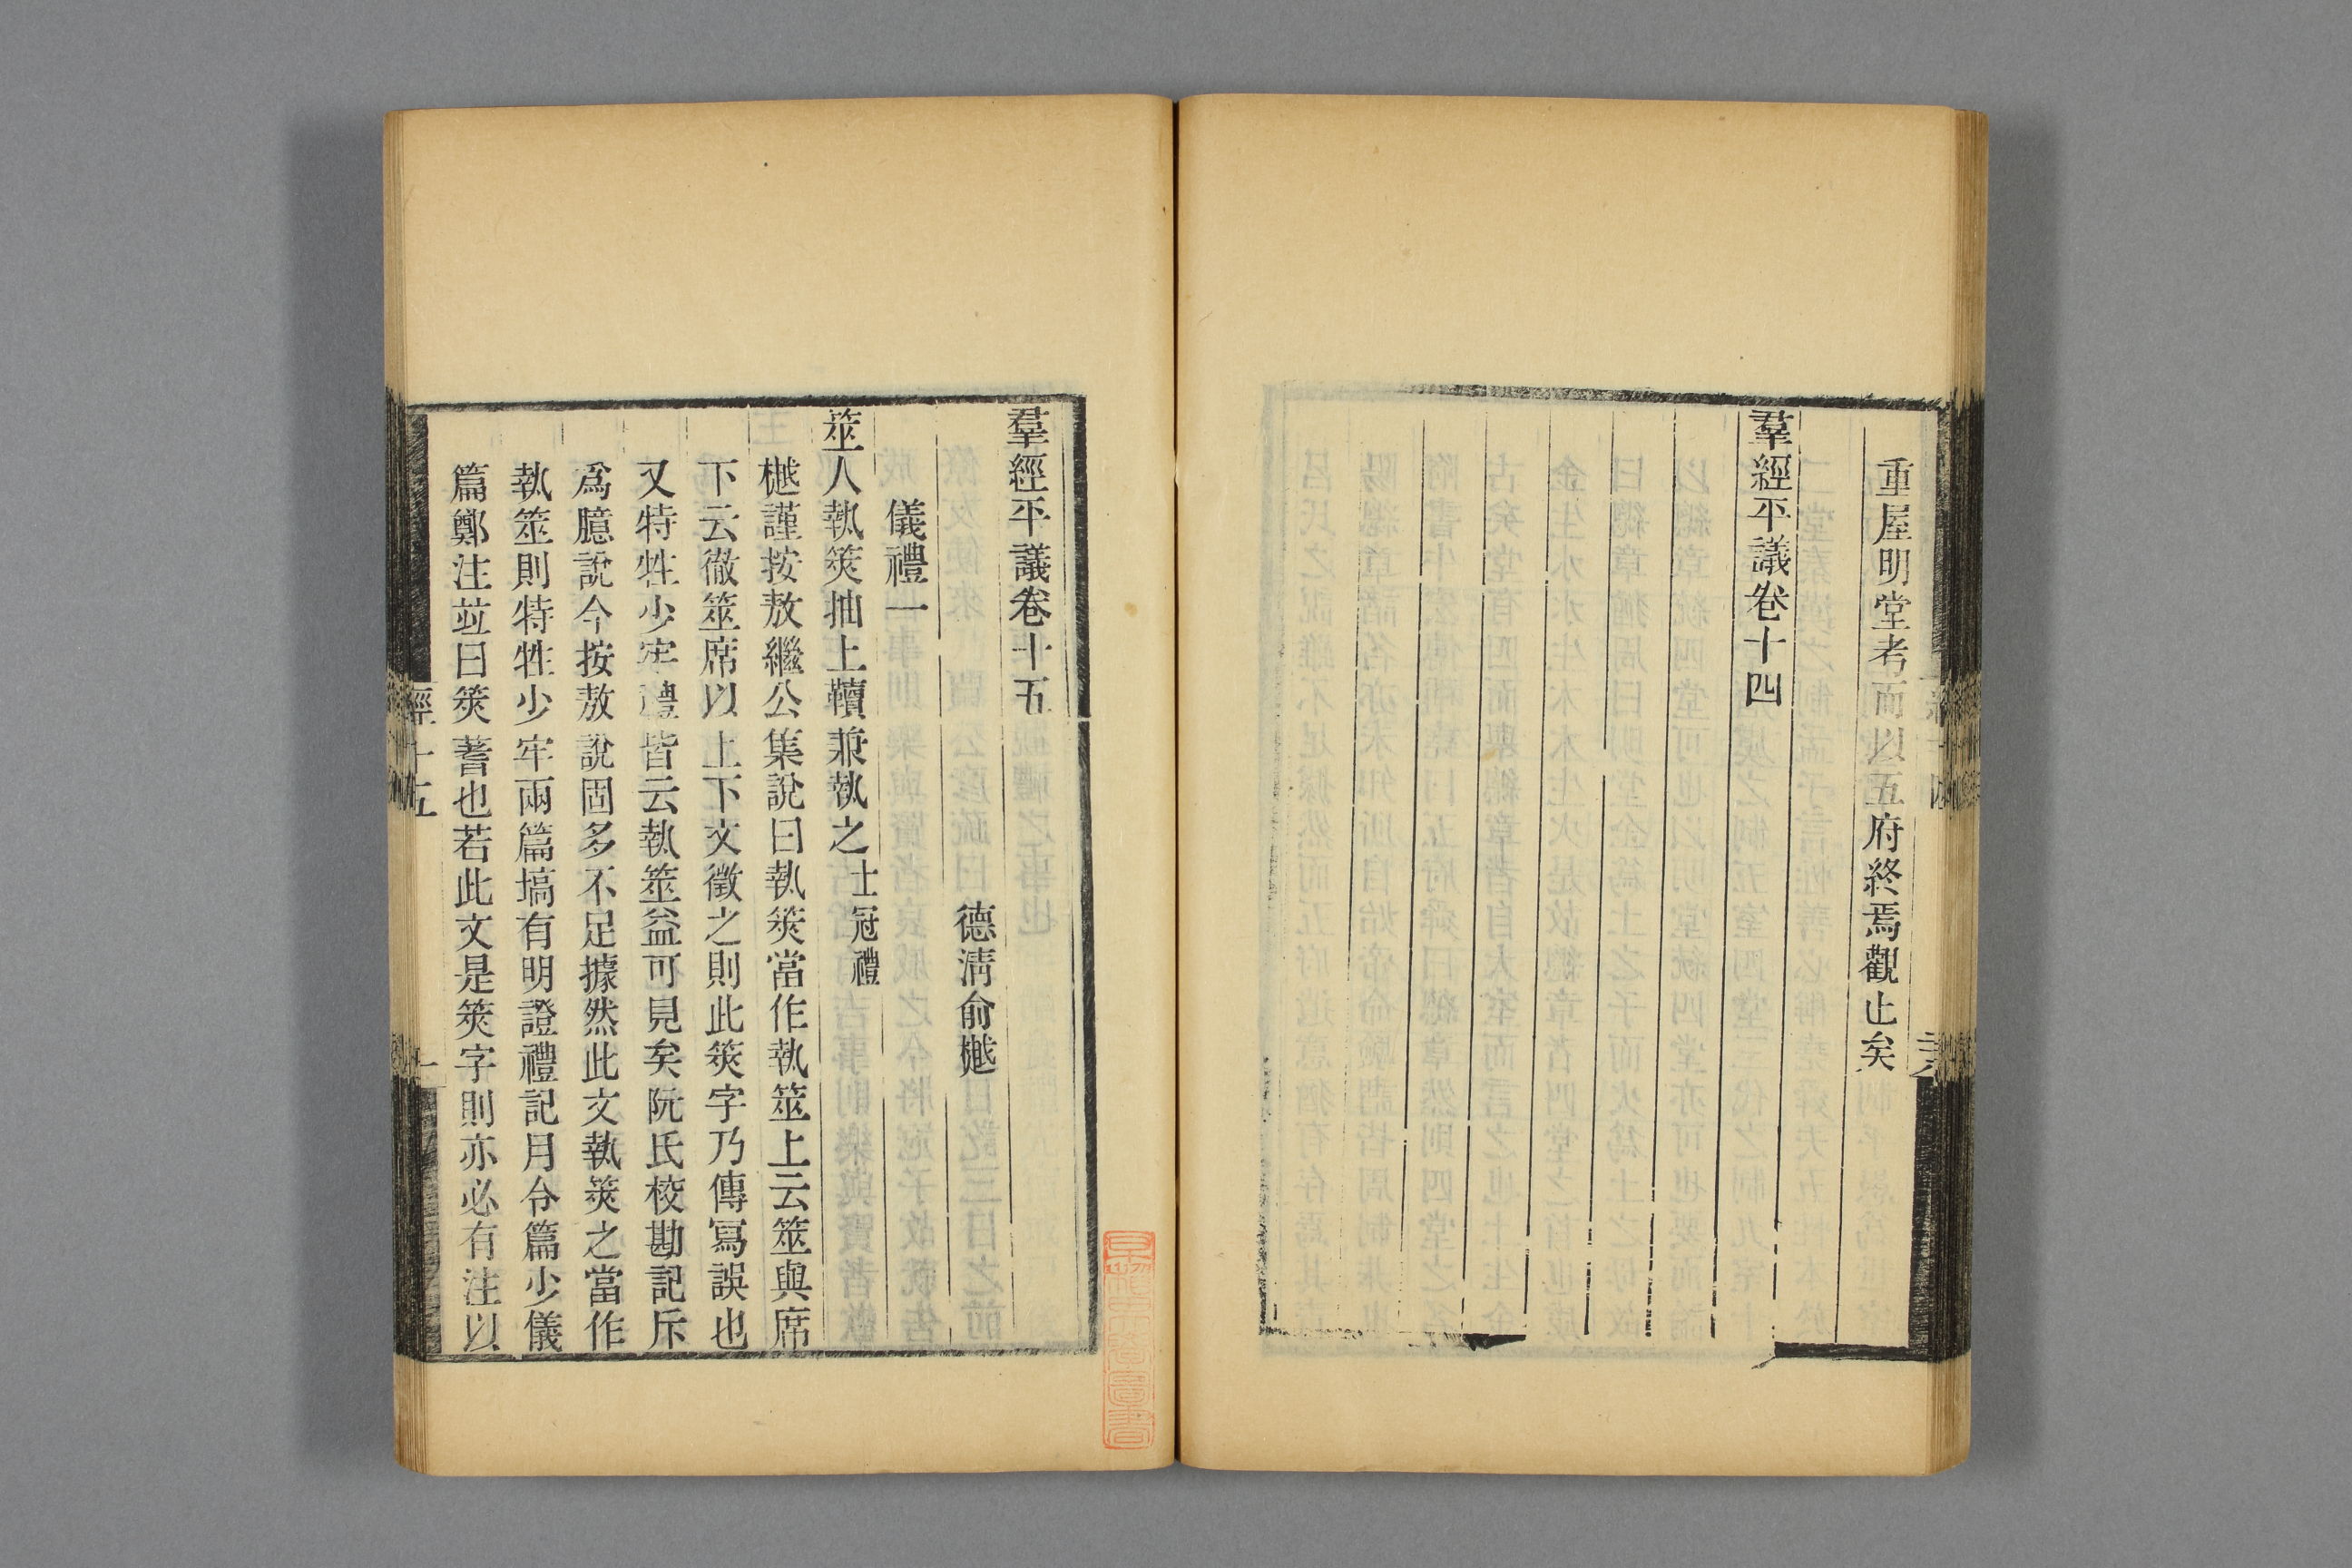 重屋明堂考而以五府終焉觀止矣
羣經平議卷十四
羣經平議卷十五
德淸俞樾
儀禮一
筮人執筴抽上韇兼執之士冠禮
樾謹按敖繼公集說曰執筴當作執筮上云筮與席
下云徹筮席以上下文徵之則此筴字乃傳寫誤也
又特牲少牢禮皆云執筮益可見矣阮氏校勘記斥
爲臆說今按敖說固多不足據然此文執筴之當作
執筮則特牲少牢兩篇塙有明證禮記月令篇少儀
篇鄭注竝曰筴蓍也若此文是筴字則亦必有注以
經十五
一